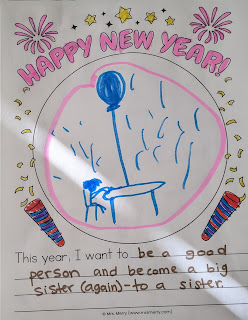 HAPPY NEW YEAR!
This year, I want to be a good
person and become a big
sister (again)-to a sister.
© Mrs. Merry (www.mrsmerry.com)